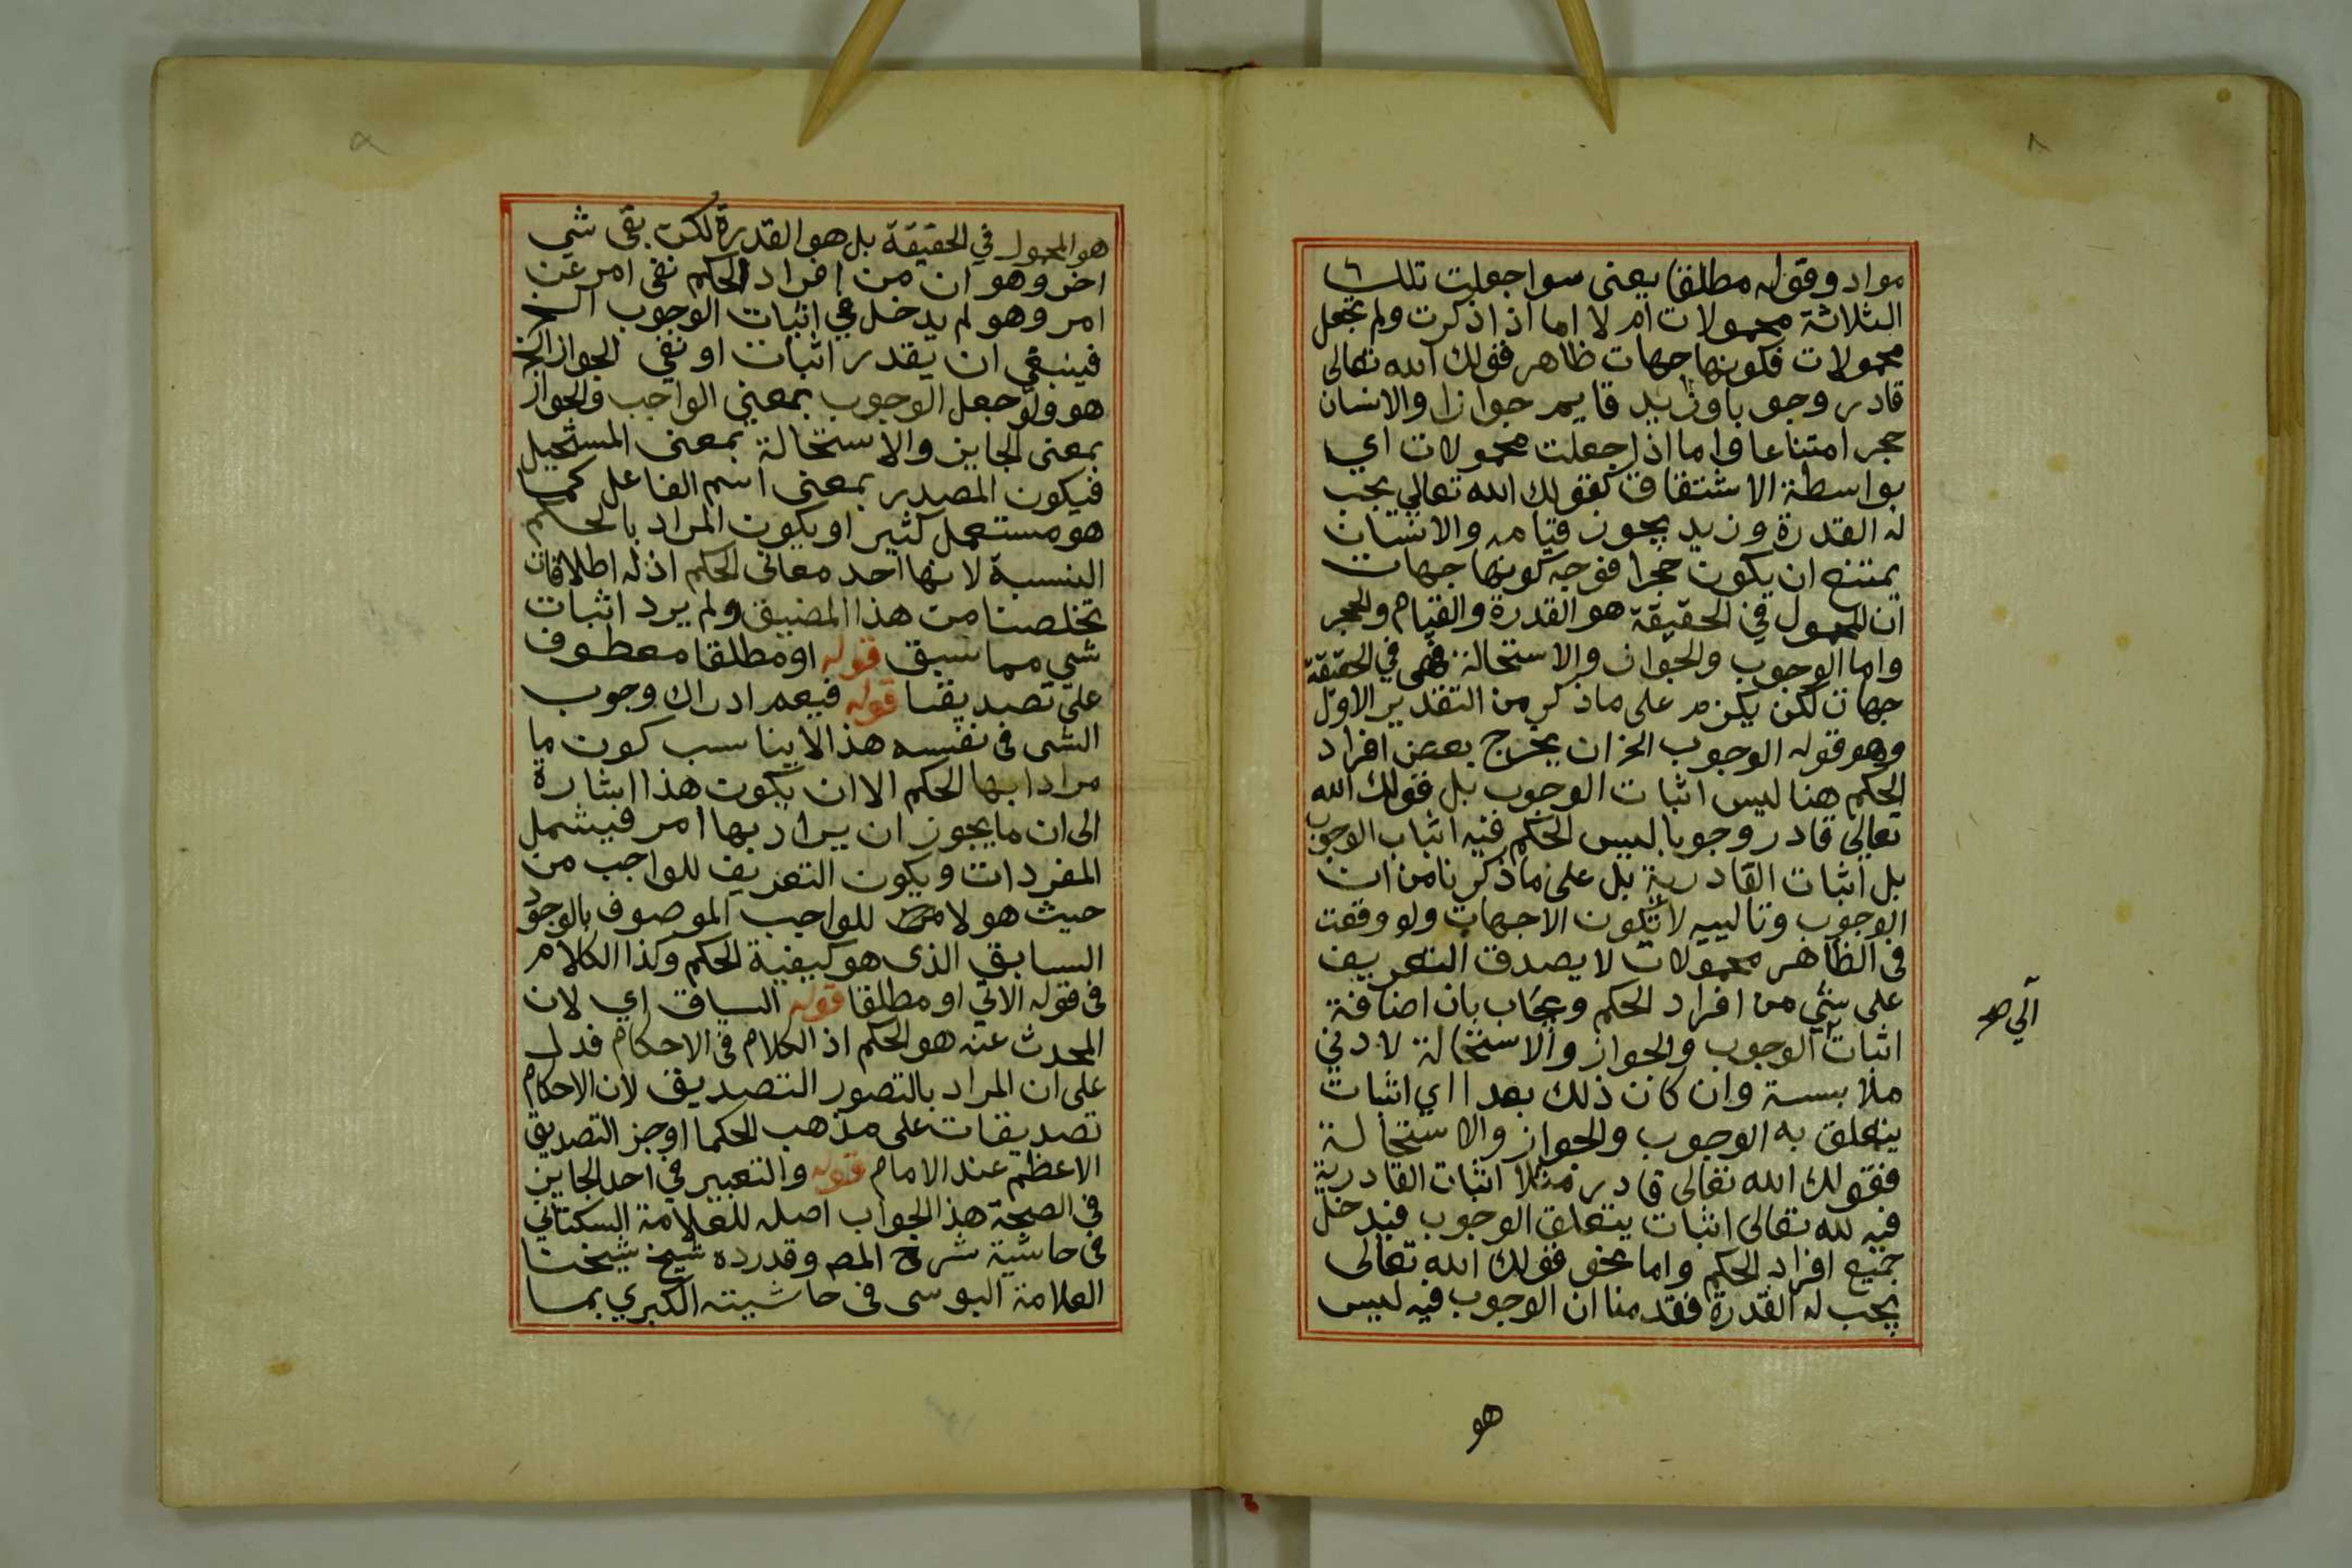 مواد وقوله مطلقا يعنى سوا جعلت تلك
الثلاثة محمولات ام لا اما اذا ذكرت ولم تجعل
محمولات فكونها جهات ظاهر فقولك الله تعالى
قادر وجوبا وزيد قايم جوازا والانسان
حجر امتناعا واما اذا جعلت محمولات اي
بواسطة الاشتقاق كقولك الله تعالي يجب
له القدرة وزيد يجوز قيامه والانسان
يمتنع ان يكون حجرا فوجه كونها جهات
ان المحمول في الحقيقة هو القدرة والقيام والحجر
واما الوجوب والجواز والاستحالة فهى في الحقيقة
جهات لكن يلزم على ما ذكر من التقدير الاول
وهو قوله الوجوب الخ ان يخرج بعض افراد
الحكم هنا ليس اثبات الوجوب بل قولك الله
تعالي قادر وجوبا ليس الحكم فيه اثبات الوجوب
بل اثبات القادرية بل على ما ذكرنا من ان
الوجوب وتالييه لا تكون الا جهات ولو وقعت
فى الظاهر محمولات لا يصدق التعريف
على شي من افراد الحكم ويجاب بان اضافة
اثبات الوجوب والجواز والاستحالة لادني
ملابسة وان كان ذلك بعدا اي اثبات
يتعلق به الوجوب والجواز والاستحالة
فقولك الله تعالى قادر مثلا اثبات القادرية
فيه لله تعالى اثبات يتعلق الوجوب فيدخل
جميع افراد الحكم واما نحو قولك الله تعالى
يجب له القدرة فقدمنا ان الوجوب فيه ليس
هو
هو المحمول في الحقيقة بل هو القدرة لكن بقى شي
اخر وهو ان من افراد الحكم نفى امر عن
امر وهو لم يدخل في اثبات الوجوب الخ
فينبغي ان يقدر اثبات او نفي الجواز الخ
هو ولو جعل الوجوب بمعني الواجب والجواز
بمعنى الجايز والاستحالة بمعنى المستحيل
فيكون المصدر بمعنى اسم الفاعل كما
هو مستعمل كثيرا ويكون المراد بالحكم
النسبة لانها احد معانى الحكم اذ له اطلاقات
تخلصنا من هذا المضيق ولم يرد اثبات
شي مما سبق قوله او مطلقا معطوف
على تصديقنا قوله فيعم ادراك وجوب
الشى فى نفسه هذا لا يناسب كون ما
مرادا بها الحكم الا ان يكون هذا اشارة
الى ان ما يجوز ان يراد بها امر فيشمل
المفردات ويكون التعريف للواجب من
حيث هو لا للواجب الموصوف بالوجود
السابق الذى هو كيفية الحكم وكذا الكلام
فى قوله الاتي او مطلقا قوله السياق اي لان
المحدث عنه هو الحكم اذ الكلام فى الاحكام فدل
على ان المراد بالتصور التصديق لان الاحكام
تصديقات على مذهب الحكما او جز التصديق
الاعظم عند الامام قوله والتعبير في احد الجايز
في الصحة هذا الجواب اصله للعلامة السكتاني
فى حاشية شرح المصـ وقد رده شيخ شيخنا
العلامة اليوسى فى حاشيته الكبري بما